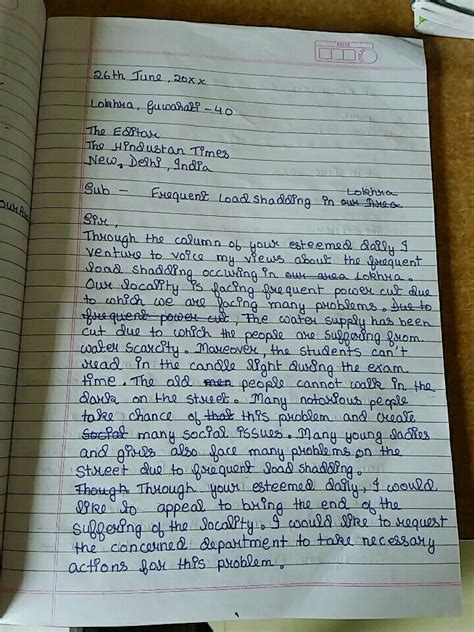 DATE
26th June, 20xx
Lokhra, Guwahati - 40
The Editor
The Hindustan Times
New Delhi, India
Lokhra
Sub - Frequent Load shadding in our Area
Sir,
Through the column of your esteemed daily I
venture to voice my views about the frequent
load shadding occuring in our area Lokhra.
Our locality is facing frequent power cut due
to which we are facing many problems. Due to
frequent power cut, The water supply has been
cut due to which the people are suffering from
water scarcity. Moreover, the students can't
read in the candle light during the exam
time. The old men people cannot walk in the
dark on the street. Many notorious people
take chance of that this problem and create
social many social issues. Many young ladies
and girls also face many problems on the
street due to frequent load shadding.
Though Through your esteemed daily, I would
like to appeal to bring the end of the
suffering of the locality. I would like to request
the concerned department to take necessary
actions for this problem.